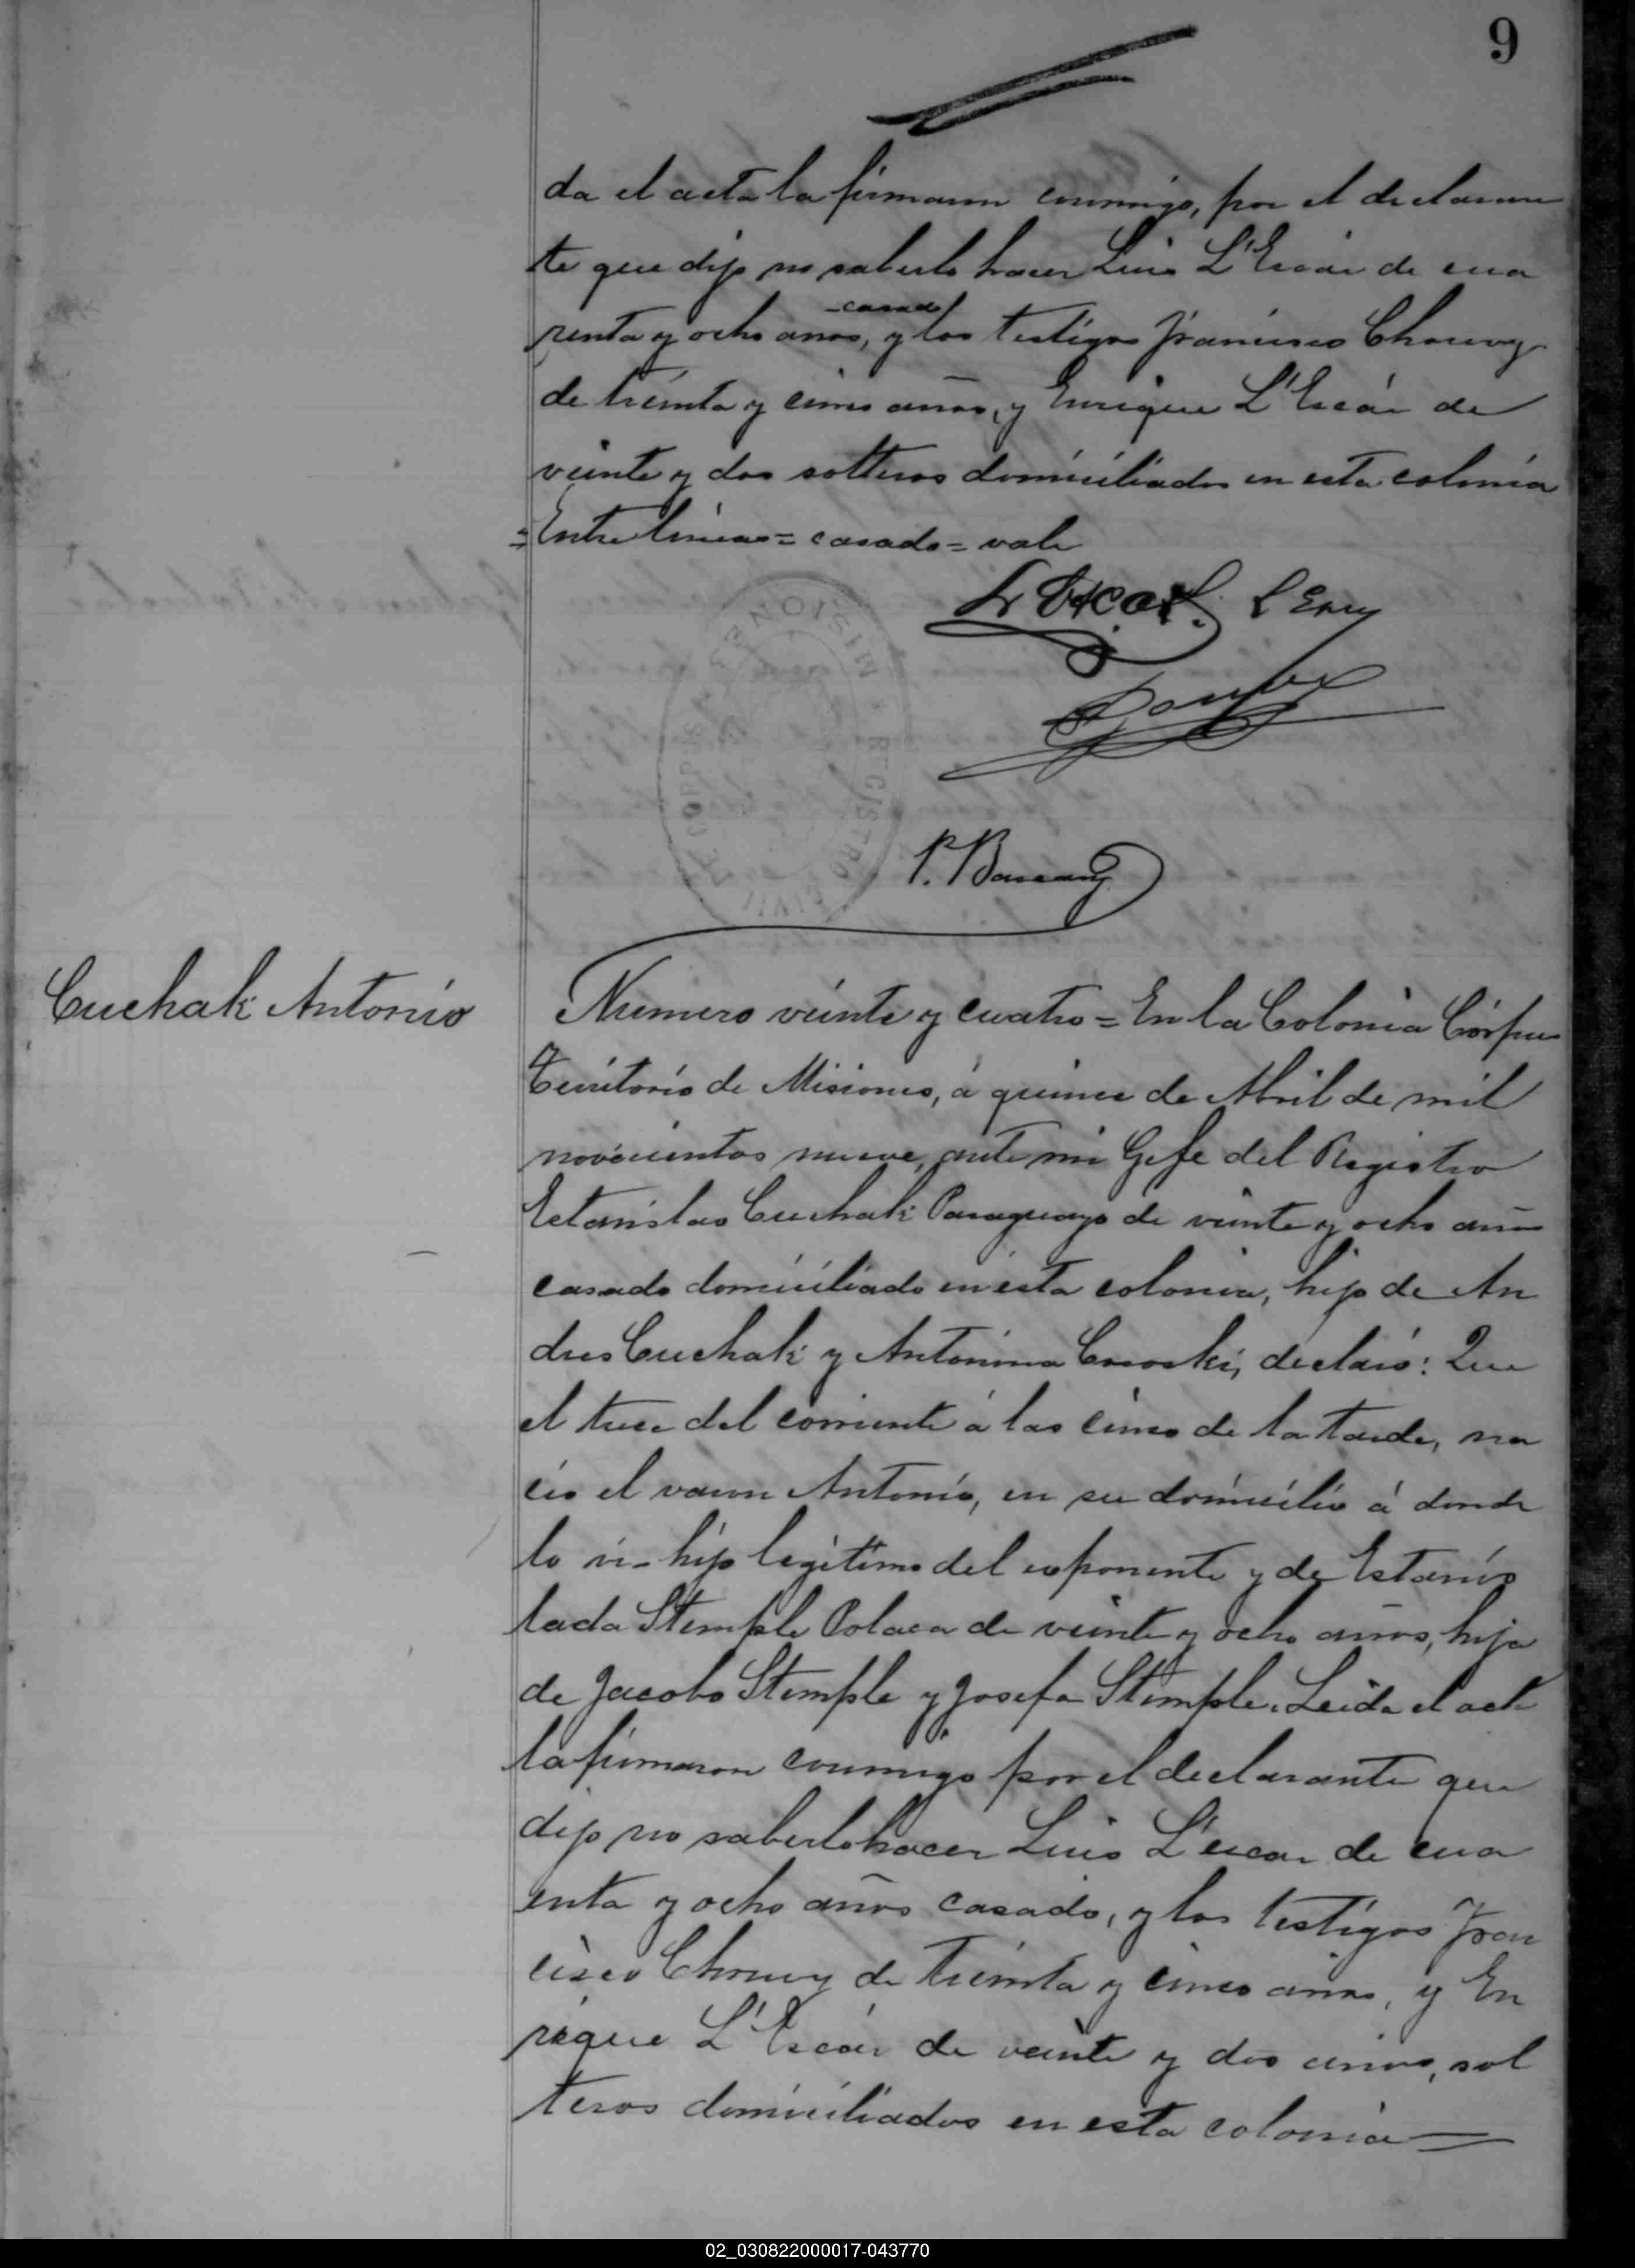 9
da el acta la firmaron conmigo, por el declaran
te que dijo no saberlo hacer Luis L'Escár de cua
renta y ocho anos, casado y los testigos Francisco Chouvy
de treinta y cinco años, y Enrique L'Escár de
veinte y dos solteros domiciliados en esta colonia
=Entre lineas= casado= vale
MISIONES * REGISTRO CIVIL
L'Escar
Cuchak Antonio
Numero veinte y cuatro = En la Colonia Córpus
Territorio de Misiones, á quince de Abril de mil
novecientos nueve, ante mi Gefe del Registro
Estanislao Cuchak Paraguayo de veinte y ocho años
casado domiciliado en esta colonia, hijo de An
dres Cuchak y Antonina declaró: Que
el trece del corriente á las cinco de la tarde, na
ció el varon Antonio, en su domicilio á donde
lo vi- hijo legítimo del exponente y de Estanis
lada Stemple Polaca de veinte y ocho años, hija
de Jacobo Stemple y Josefa Stemple. Leida el acta
la firmaron conmigo por el declarante que
dijo no saberlo hacer Luis L'Escar de cua
enta y ocho años casado, y los testigos Fran
cisco Chouvy de treinta y cinco años, y En
rique L'Escár de veinte y dos años, sol
teros domiciliados en esta colonia
02_030822000017-043770